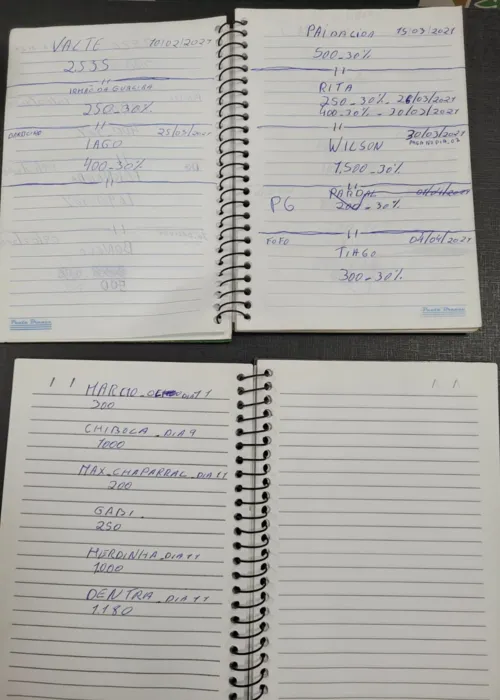 VALTE 10/02/2021
2535
IRMÃO DA
250_30%
11
25/03/2021
IAGO
400_30%
11
15/03/2021
500_30%
11
RITA
250_30%_26/03/2021
400_30%_30/03/2021
11
30/03/2021
WILSON
1,500_30%
11
RANDAL
PG 200_30%
11
FOFO 04/04/2021
TIAGO
300_30%
MARCIO
200
CHIBOCA_DIA 9
1000
MAX_CHAPARRAL_DIA 11
200
GABI
250
MERDINHA_DIA 11
1000
DENTRA_DIA 11
1.180